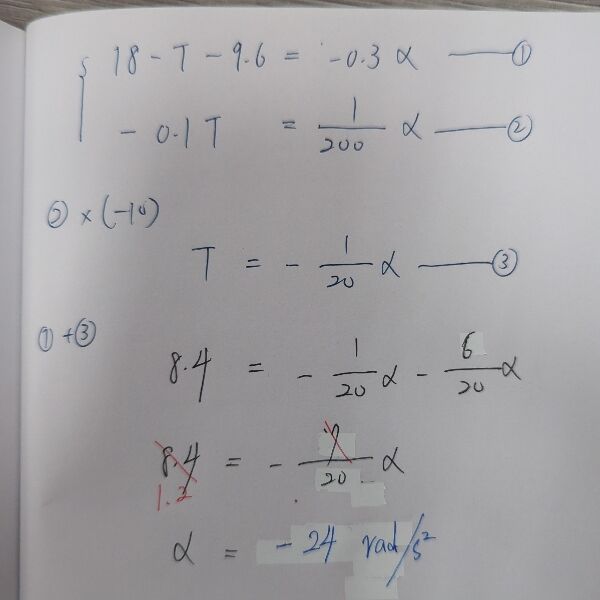 18 - T - 9.6 = -0.3 α —— ①
- 0.1 T = 1/200 α —— ②
② × (-10)
T = - 1/20 α —— ③
① + ③
8.4 = - 1/20 α - 6/20 α
8.4 = - 7/20 α
1.2
α = - 24 rad/s²